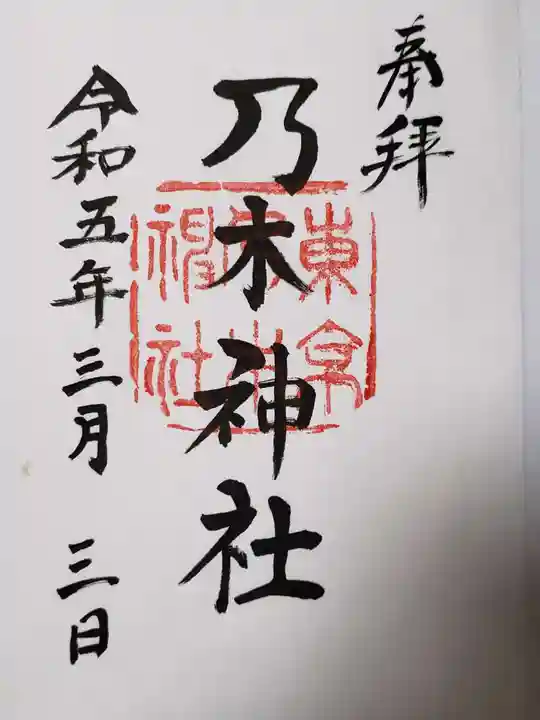 奉拝
乃木神社
東京
乃木
神社
令和五年三月三日